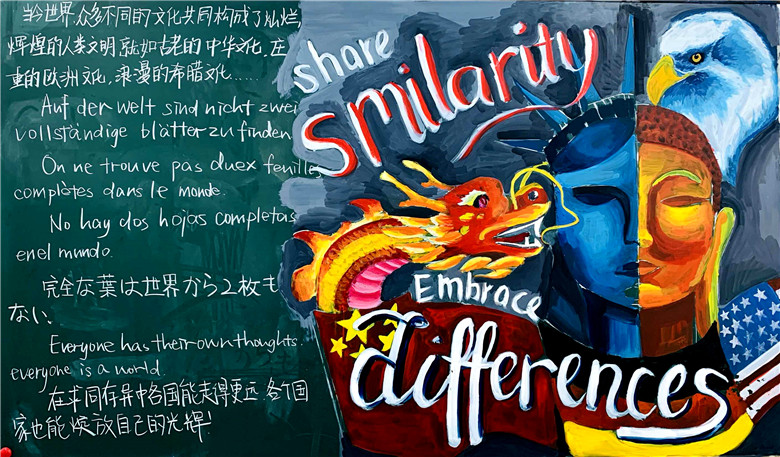 当今世界,众多不同的文化共同构成了灿烂,
辉煌的人类文明,就如古老的中华文化,庄
重的欧洲文化,浪漫的希腊文化……
Auf der welt sind nicht zwei
vollständige blätter zu finden
On ne trouve pas duex feuilles
complètes dans le monde.
No hay dos hojas completas
enel mundo.
完全な葉は世界から2枚も
ない、
Everyone has their own thoughts.
everyone is a world.
在求同存异中各国能走得更远.各个国
家也能焕放自己的光辉!
share
Smilarity
Embrace
differences